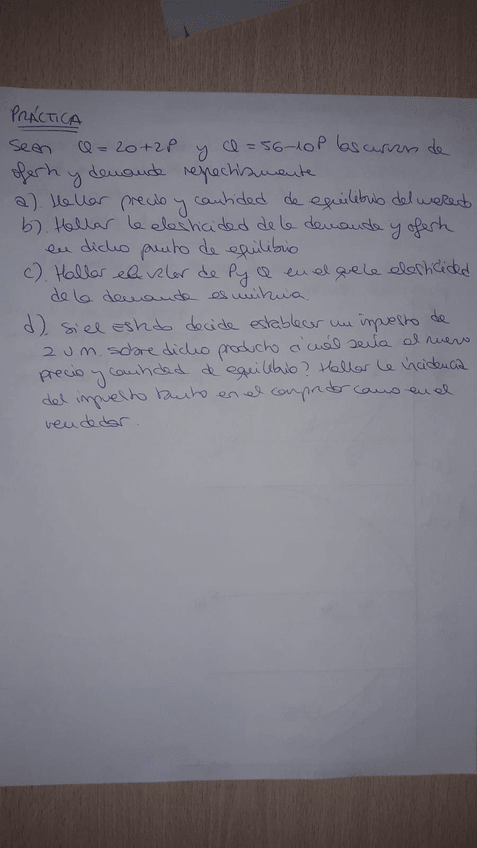 PRÁCTICA
Sean Q = 20+2P y Q = 56-10P las curvas de
oferta y demanda respectivamente
a). Hallar precio y cantidad de equilibrio del mercado
b). Hallar la elasticidad de la demanda y oferta
en dicho punto de equilibrio
c). Hallar el valor de P y Q en el que la elasticidad
de la demanda es unitaria.
d). Si el Estado decide establecer un impuesto de
2 u m. sobre dicho producto ¿cuál sería el nuevo
precio y cantidad de equilibrio? Hallar la incidencia
del impuesto tanto en el comprador como en el
vendedor.